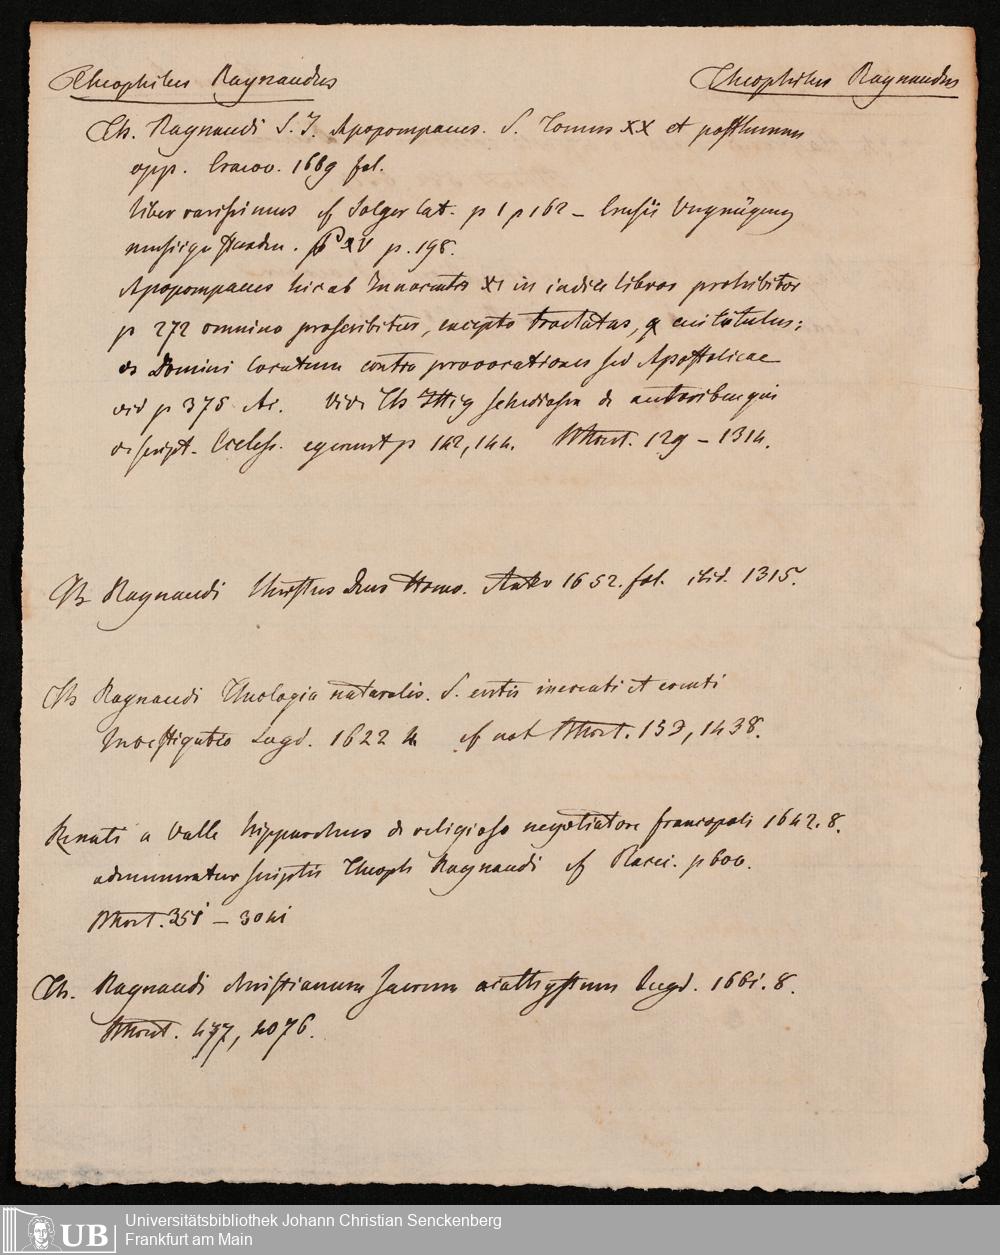 Theophilus Raynaudus
Theophilus Raynaudus
Th. Raynaudi S. J. Apopompaeus. S. Tomus XX et posthumus
opp. Cracov. 1669 fol.
liber rarissimus cf Solger Cat. p 1 p 162 – Crusii Vergnügung
müssiger Stunden. XV p. 198.
Apopompaeus hic ab Innocentio XI in indice libror prohibitor
p 272 omnino proscribitur, excepto tractatus, cui titulus:
Domini locutum contra provocationes sed Apostolicae
vid p 375 Ac. Vide Th Ittig schediasm de autoribus qui
de script. Ecclesi. egerunt p 142, 144. 129 – 1314.
Th Raynaudi Christus Deus Homo. Antv 1652. fol. ibid. 1315.
Th Raynaudi Theologia naturalis. S. entis increati et creati
Investigatio Lugd. 1622 4 cf not 153, 1438.
Renati a Valle hipparchus de religioso negotiatore francopoli 1642. 8.
adnumeratur scriptis Theoph Raynaudi cf Placci. p 600.
351 – 3041
Th. Raynaudi christianum sacrum acathystum Lugd. 1661. 8.
477, 4076.
UB
Universitätsbibliothek Johann Christian Senckenberg
Frankfurt am Main